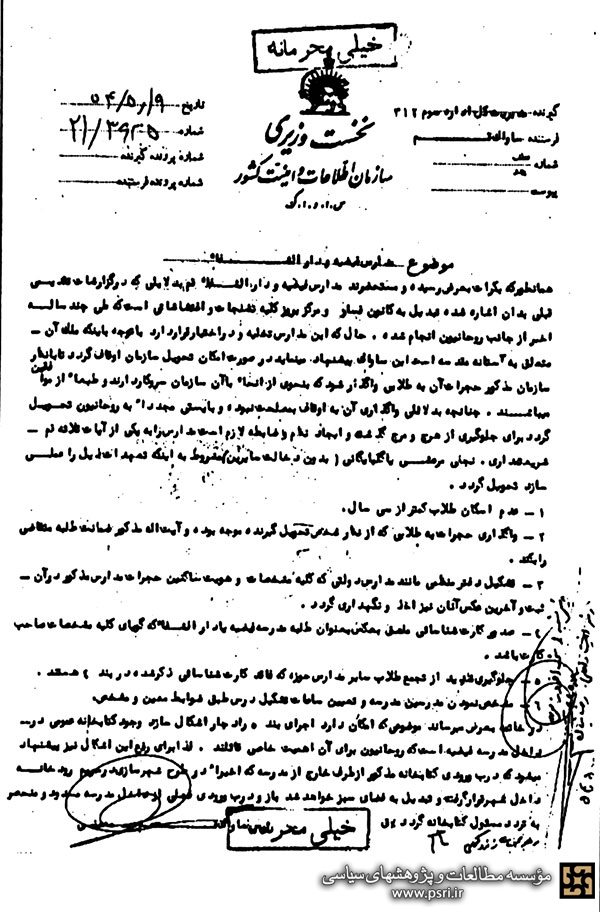 خیلی محرمانه
گیرنده مدیریت کل اداره سوم ۳۱۲
فرستنده ساواک قم
شماره
پیوست
نخست وزیری
سازمان اطلاعات و امنیت کشور
س.ا.و.ا.ک
تاریخ ۵۴/۵/۱۹
شماره ۲۱/۳۹۲۵
شماره پرونده گیرنده
شماره پرونده فرستنده
موضوع مدارس فیضیه و دارالشفاء
همانطور که بکرات بعرض رسیده و مستحضرند مدارس فیضیه و دارالشفاء قم بدلایلی که در گزارشات تقدیمی
قبلی بدان اشاره شده تبدیل به کانون فساد و مرکز بروز کلیه تشنجات و اغتشاشاتی است که طی چند ساله
اخیر از جانب روحانیون انجام شده. حال که این مدارس تخلیه و در اختیار قرار دارد با توجه باینکه ملک آن ـ
متعلق به آستانه مقدسه است این ساواک پیشنهاد مینماید در صورت امکان تحویل سازمان اوقاف گردد تا بانظر
سازمان مذکور حجرات آن به طلابی واگذار شود که بنحوی از انحاء با آن سازمان سروکار دارند و طبعا از موافقین
میباشند. چنانچه بدلائلی واگذاری آن به اوقاف بمصلحت نبوده و بایستی مجددا به روحانیون تحویل
گردد برای جلوگیری از هرج و مرج گذشته و ایجاد نظم و ضابطه لازم است مدارس را به یکی از آیات ثلاثه قم ـ
شریعتمداری. نجفی مرعشی یا گلپایگانی (بدون دخالت سایرین) مشروط به اینکه تعهدات ذیل را عملی
سازد تحویل گردد.
۱ ـ عدم اسکان طلاب کمتر از سی سال.
۲ ـ واگذاری حجرات به طلابی که از نظر شخص تحویل گیرنده موجه بوده و آیت اله مذکور ضمانت طلبه متقاضی
را بکند.
۳ ـ تشکیل دفتر منظمی مانند مدارس دولتی که کلیه مشخصات و هویت ساکنین حجرات مدارس مذکور در آن ـ
ثبت و آخرین عکس آنان نیز اخذ و نگهداری گردد.
۴ ـ صدور کارت شناسائی ملصق بعکس بعنوان طلبه مدرسه فیضیه یا دارالشفاء که گویای کلیه مشخصات صاحب
کارت باشد.
۵ ـ جلوگیری شدید از تجمع طلاب سایر مدارس حوزه که فاقد کارت شناسائی ذکر شده در بند ۴ هستند.
۶ ـ مشخص نمودن مدرسین مدرسه و تعیین ساعات تشکیل درس طبق ضوابط معین و مشخص.
در خاتمه بعرض میرساند موضوعی که امکان دارد اجرای بند ۵ را دچار اشکال سازد وجود کتابخانه عمومی در ـ
داخل مدرسه فیضیه است که روحانیون برای آن اهمیت خاصی قائلند. لذا برای رفع این اشکال نیز پیشنهاد
میشود که درب ورودی کتابخانه مذکور از طرف خارج از مدرسه که اخیرا در طرح شهرسازی و ترمیم رودخانه
داخل شهر قرار گرفته و تبدیل به فضای سبز خواهد شد باز و درب ورودی فعلی از داخل مدرسه مسدود و منحصر
به تردد مسئول کتابخانه گردد
خیلی محرمانه
مؤسسه مطالعات و پژوهشهای سیاسی
www.psri.ir